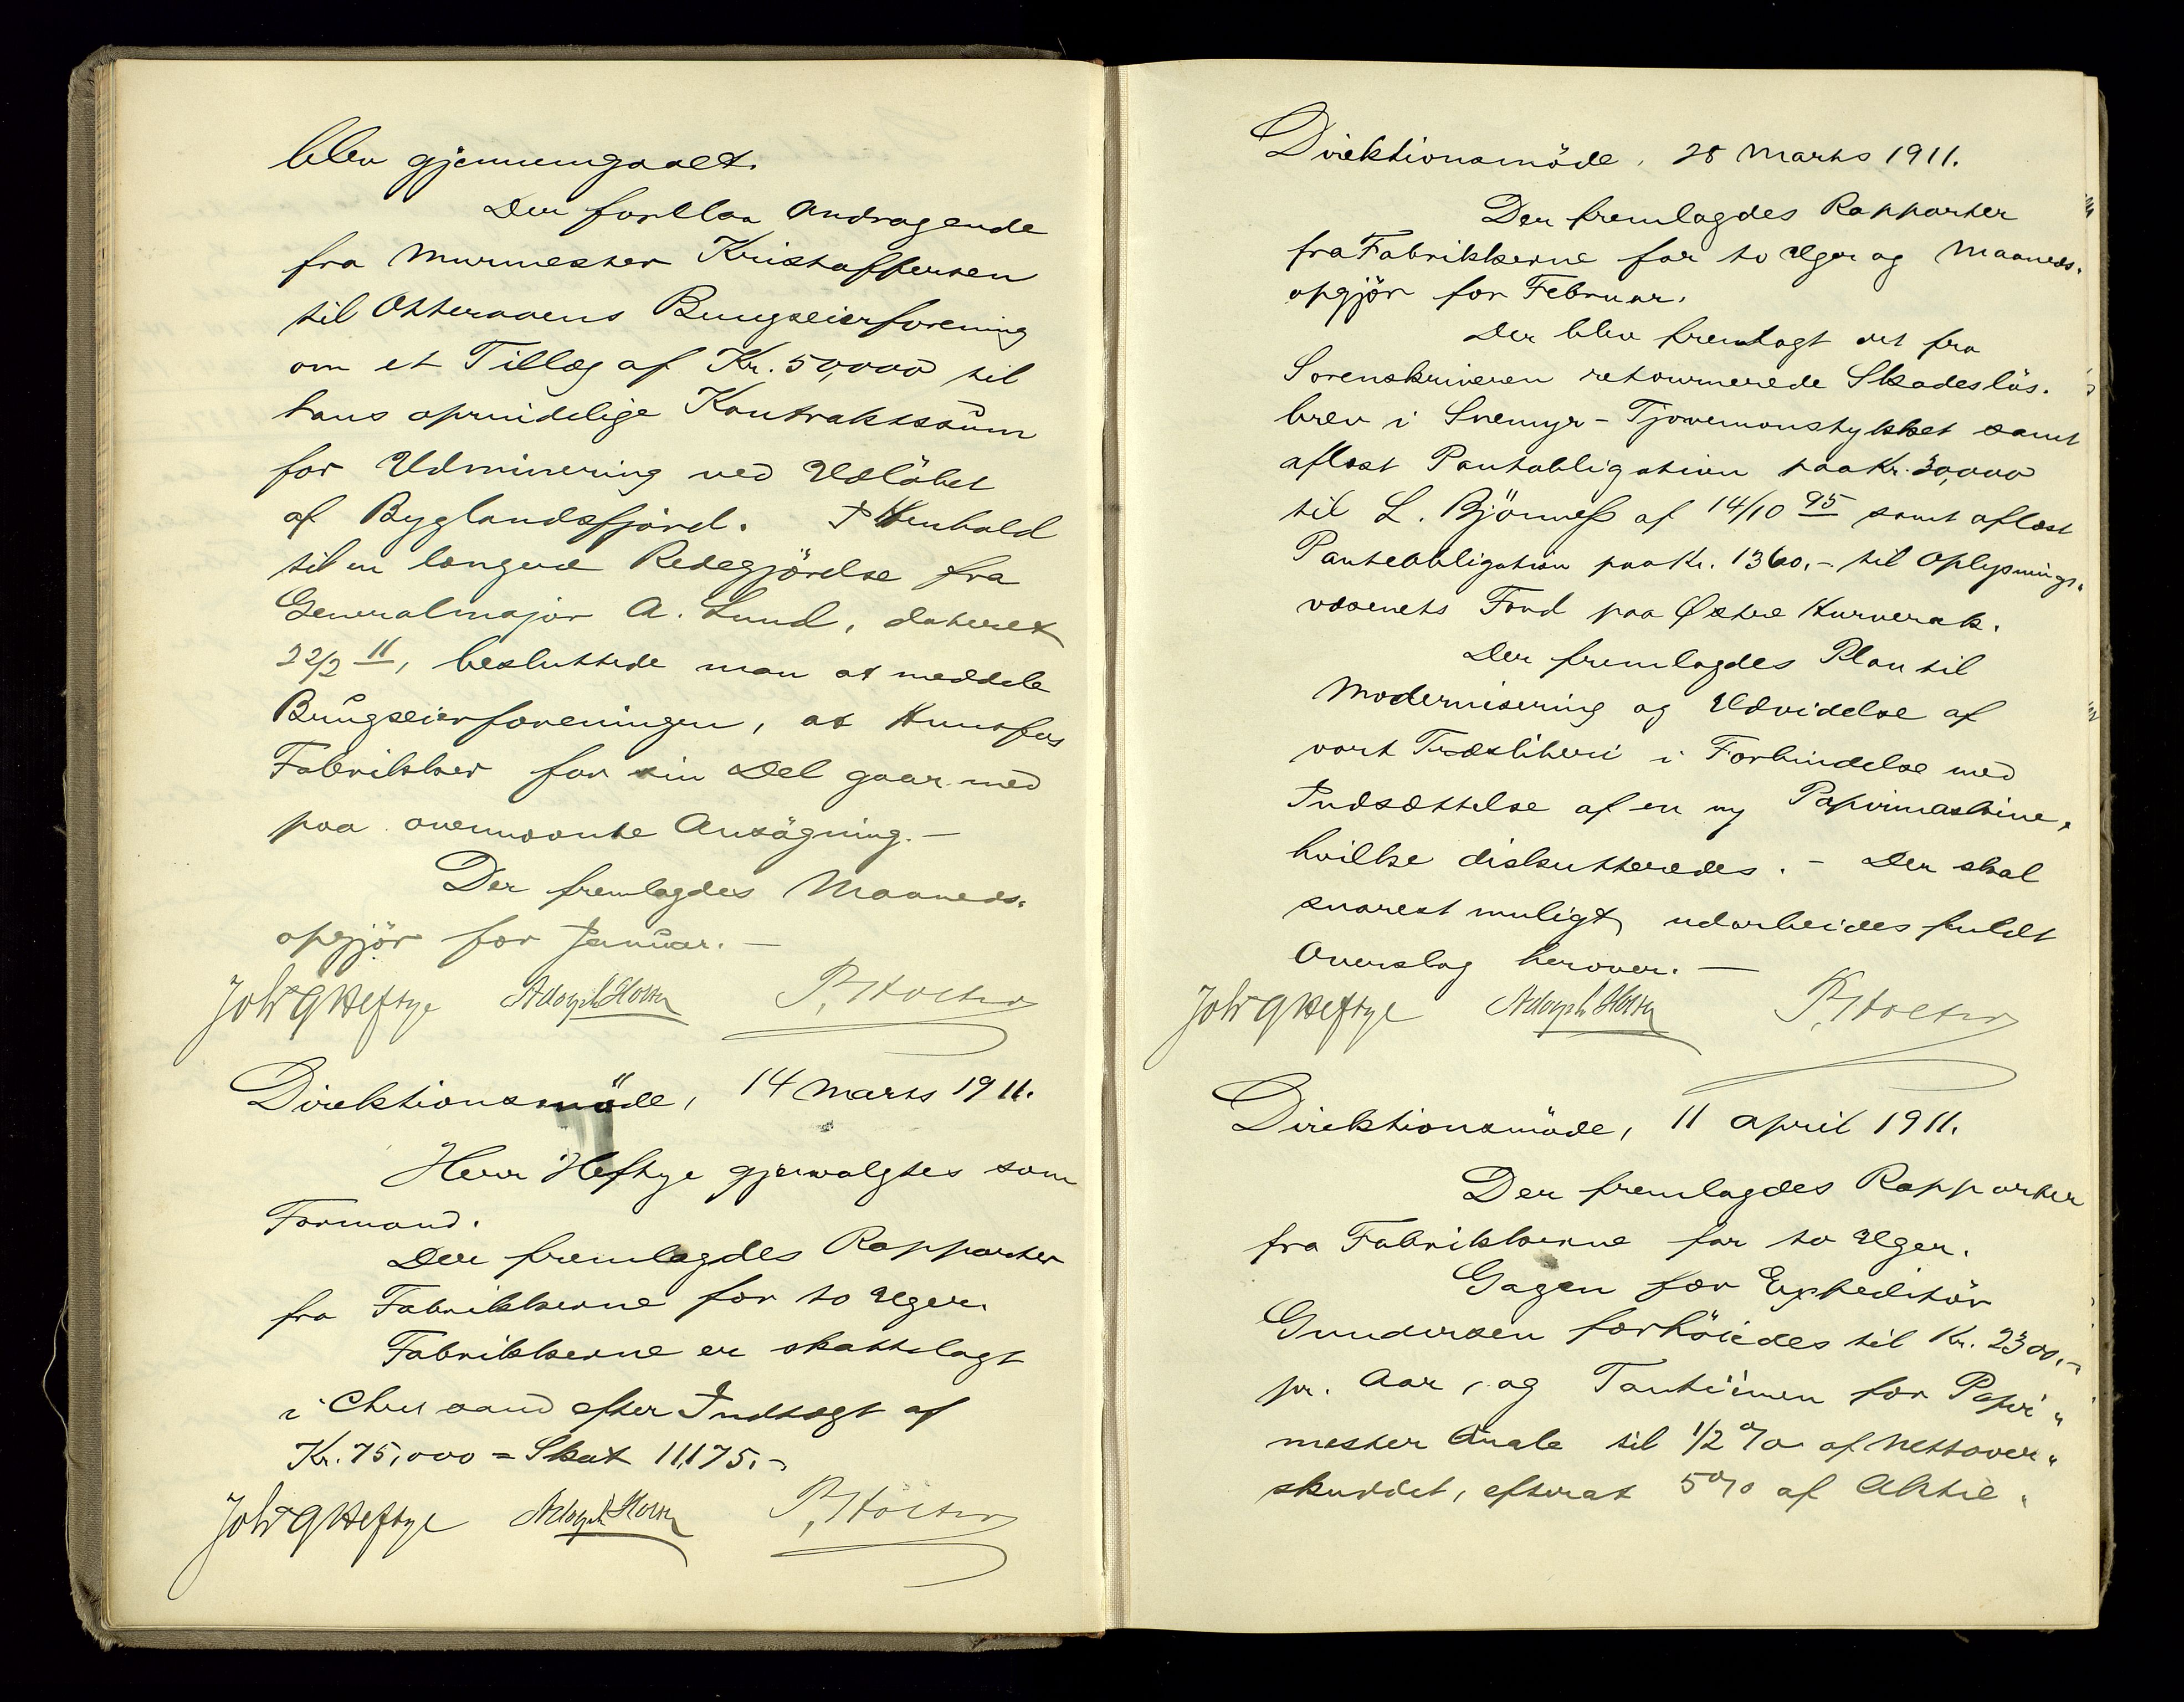 blev gjennemgaaet.
Der forelaa Andragende
fra Murmester Kristoffersen
til Otteraaens Brugseierforening
om et Tillæg af Kr. 50,000 til
hans oprindelige Kontraktssum
for Udminering ved Udløbet
af Byglandsfjord. I Henhold
til en længere Redegjörelse fra
Generalmajor A. Lund, dateret
22/2 11, besluttede man at meddele
Brugseierforeningen, at Hunsfos
Fabrikker for sin Del gaar med
paa ovennævnte Ansøgning. —
Der fremlagdes Maaneds-
opgjör for Januar. —
Joh H Heftye Adolph Holter P. Holter
Direktionsmöde, 14 Marts 1911.
Herr Heftye gjenvalgtes som
Formand.
Der fremlagdes Rapporter
fra Fabrikkerne for to Uger.
Fabrikkerne er skattelagt
i Chrs sand efter Indtægt af
Kr. 75,000 = Skat 11,175.-
Joh H Heftye Adolph Holter P. Holter
Direktionsmöde, 28 Marts 1911.
Der fremlagdes Rapporter
fra Fabrikkerne for to Uger og Maaneds-
opgjör for Februar.
Der blev fremlagt det fra
Sorenskriveren retournerede Skadeslös-
brev i Snemyr - Tjovemonstykket samt
aflæst Pantobligation paa Kr. 30,000
til L. Björneß af 14/10 95 samt aflæst
Panteobligation paa Kr. 1360.- til Oplysnings-
væsenets Fond paa Østre Kurverak.
Der fremlagdes Plan til
Modernisering og Udvidelse af
vort Træsliberi i Forbindelse med
Indsættelse af en ny Papirmaskine,
hvilke diskutteredes. - Der skal
snarest muligt udarbeides fuldt
Overslag herover. —
Joh H Heftye Adolph Holter P. Holter
Direktionsmöde, 11 April 1911.
Der fremlagdes Rapporter
fra Fabrikkerne for to Uger.
Gagen for Expeditör
Gundersen forhöiedes til Kr. 2300.-
pr. Aar, og Tantiémen for Papir-
mester til 1/2 % af Nettover-
skuddet, efterat 5% af Aktie-